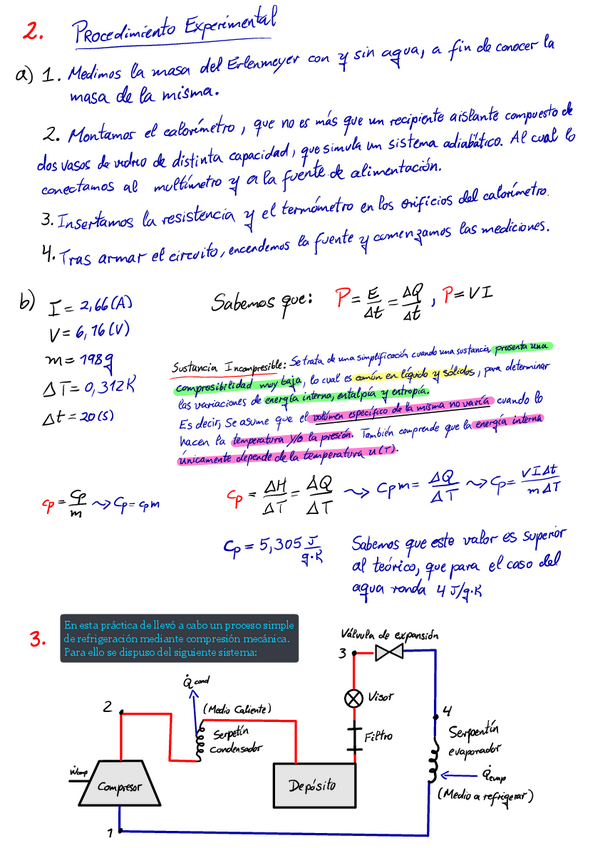 2. Procedimiento Experimental
a) 1. Medimos la masa del Erlenmeyer con y sin agua, a fin de conocer la
masa de la misma.
2. Montamos el calorímetro, que no es más que un recipiente aislante compuesto de
dos vasos de vidrio de distinta capacidad, que simula un sistema adiabático. Al cual lo
conectamos al multímetro y a la fuente de alimentación.
3. Insertamos la resistencia y el termómetro en los orificios del calorímetro.
4. Tras armar el circuito, encendemos la fuente y comenzamos las mediciones.
b) I = 2,66 (A)
V = 6,76 (V)
m = 198g
ΔT = 0,312K
Δt = 20 (s)
Sabemos que: P = E/Δt = ΔQ/Δt , P = VI
Sustancia Incompresible: Se trata de una simplificación cuando una sustancia, presenta una
compresibilidad muy baja, lo cual es común en líquido y sólidos, para determinar
las variaciones de energía interna, entalpía y entropía.
Es decir, se asume que el volumen específico de la misma no varía cuando lo
hacen la temperatura y/o la presión. También comprende que la energía interna
únicamente depende de la temperatura u(T).
cp = Cp/m ⇝ Cp = cpm
Cp = ΔH/ΔT = ΔQ/ΔT ⇝ Cpm = ΔQ/ΔT ⇝ Cp = VIΔt/mΔT
Cp = 5,305 J/g·K
Sabemos que este valor es superior
al teórico, que para el caso del
agua ronda 4 J/g·K
3.
En esta práctica de llevó a cabo un proceso simple
de refrigeración mediante compresión mecánica.
Para ello se dispuso del siguiente sistema:
Válvula de expansión
3
Q̇cond
2
(Medio Caliente)
Serpetín
condensador
Visor
Filtro
4
Serpentín
evaporador
Q̇evap
(Medio a refrigerar)
Ẇcomp
Compresor
Depósito
1